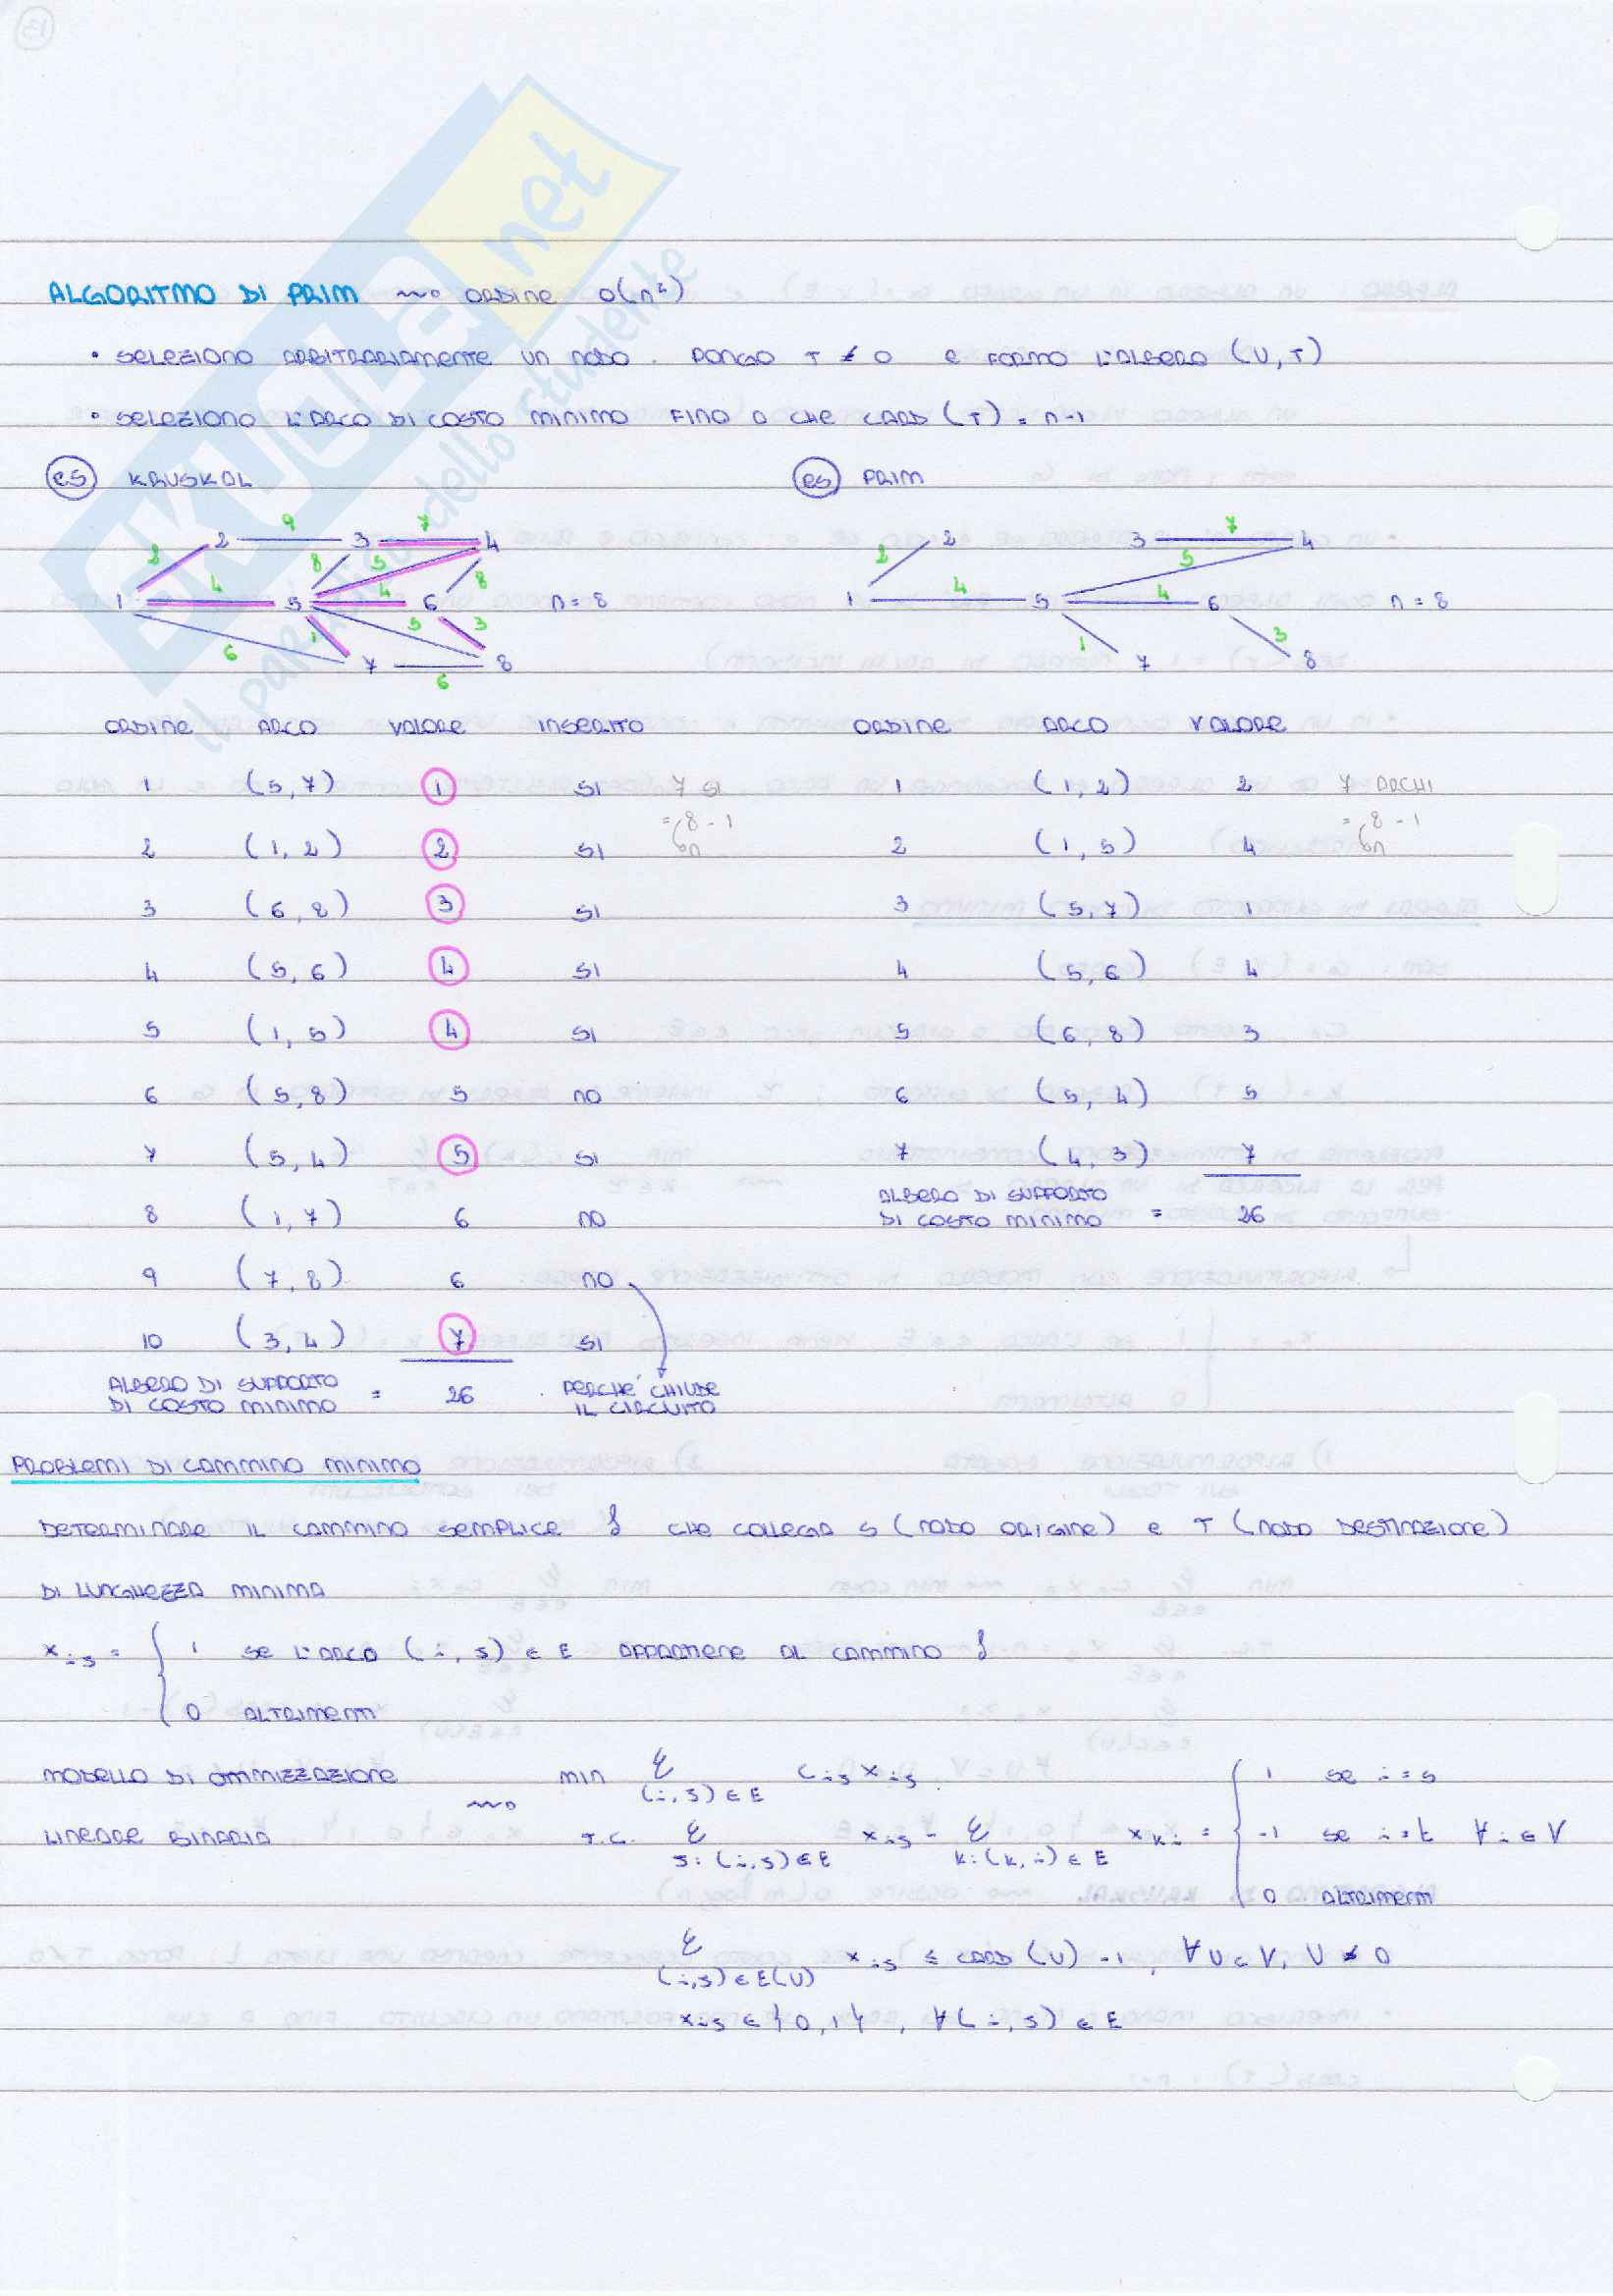 13
SKUOLA.net
il paradiso dello studente
ALGORITMO DI PRIM ⇝ ORDINE O(n²)
• SELEZIONO ARBITRARIAMENTE UN NODO. PONGO T ≠ 0 E FORMO L'ALBERO (U,T)
• SELEZIONO L'ARCO DI COSTO MINIMO FINO A CHE CARD (T) = n-1
es KRUSKAL
es PRIM
2 9 3 7 4
2 4 8 5 8
1 5 4 6 n = 8
6 1 5 3
7 6 8
2 3 7 4
2 4 5
1 5 4 6 n = 8
1 3
7 8
ORDINE ARCO VALORE INSERITO
1 (5,7) 1 SI 7 SI
= 8 - 1
n
2 (1,2) 2 SI
3 (6,8) 3 SI
4 (5,6) 4 SI
5 (1,5) 4 SI
6 (5,8) 5 NO
7 (5,4) 5 SI
8 (1,7) 6 NO
9 (7,8) 6 NO
10 (3,4) 7 SI
ALBERO DI SUPPORTO
DI COSTO MINIMO = 26
PERCHE' CHIUDE
IL CIRCUITO
ORDINE ARCO VALORE
1 (1,2) 2 7 ARCHI
= 8 - 1
n
2 (1,5) 4
3 (5,7) 1
4 (5,6) 4
5 (6,8) 3
6 (5,4) 5
7 (4,3) 7
ALBERO DI SUPPORTO
DI COSTO MINIMO = 26
PROBLEMI DI CAMMINO MINIMO
DETERMINARE IL CAMMINO SEMPLICE CHE COLLEGA S (NODO ORIGINE) E T (NODO DESTINAZIONE)
DI LUNGHEZZA MINIMA
xij = { 1 SE L'ARCO (i,j) ∈ E APPARTIENE AL CAMMINO
0 ALTRIMENTI
MODELLO DI OTTIMIZZAZIONE
LINEARE BINARIA ⇝
min Σ(i,j)∈E cij xij
T.C. Σj:(i,j)∈E xij - Σk:(k,i)∈E xki = { 1 SE i = s
-1 SE i = t ∀i ∈ V
0 ALTRIMENTI
Σ(i,j)∈E(U) xij ≤ CARD (U) -1, ∀U⊂V, U ≠ 0
xij ∈ {0,1}, ∀(i,j) ∈ E